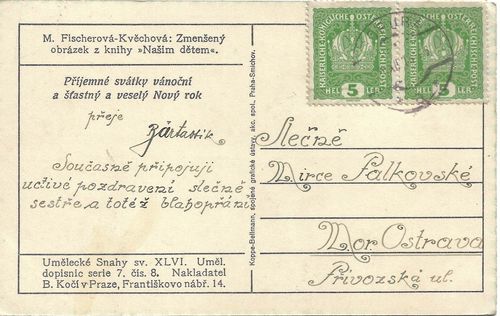 M. Fischerová-Kvěchová: Zmenšený
obrázek z knihy »Našim dětem«.
Příjemné svátky vánoční
a šťastný a veselý Nový rok
přeje
Současně připojuji
uctivé pozdravení slečně
sestře a totéž blahopřání
Umělecké Snahy sv. XLVI. Uměl.
dopisnic serie 7. čís. 8. Nakladatel
B. Kočí v Praze, Františkovo nábř. 14.
Koppe-Bellmann, spojené grafické ústavy, akc. spol., Praha-Smíchov.
KAISERLICHE KÖNIGLICHE ÖSTERREICHISCHE POST
5
HELLER
KAISERLICHE KÖNIGLICHE ÖSTERREICHISCHE POST
5
HELLER
Slečně
Mirce Palkovské
Mor. Ostrava
Přívozská ul.